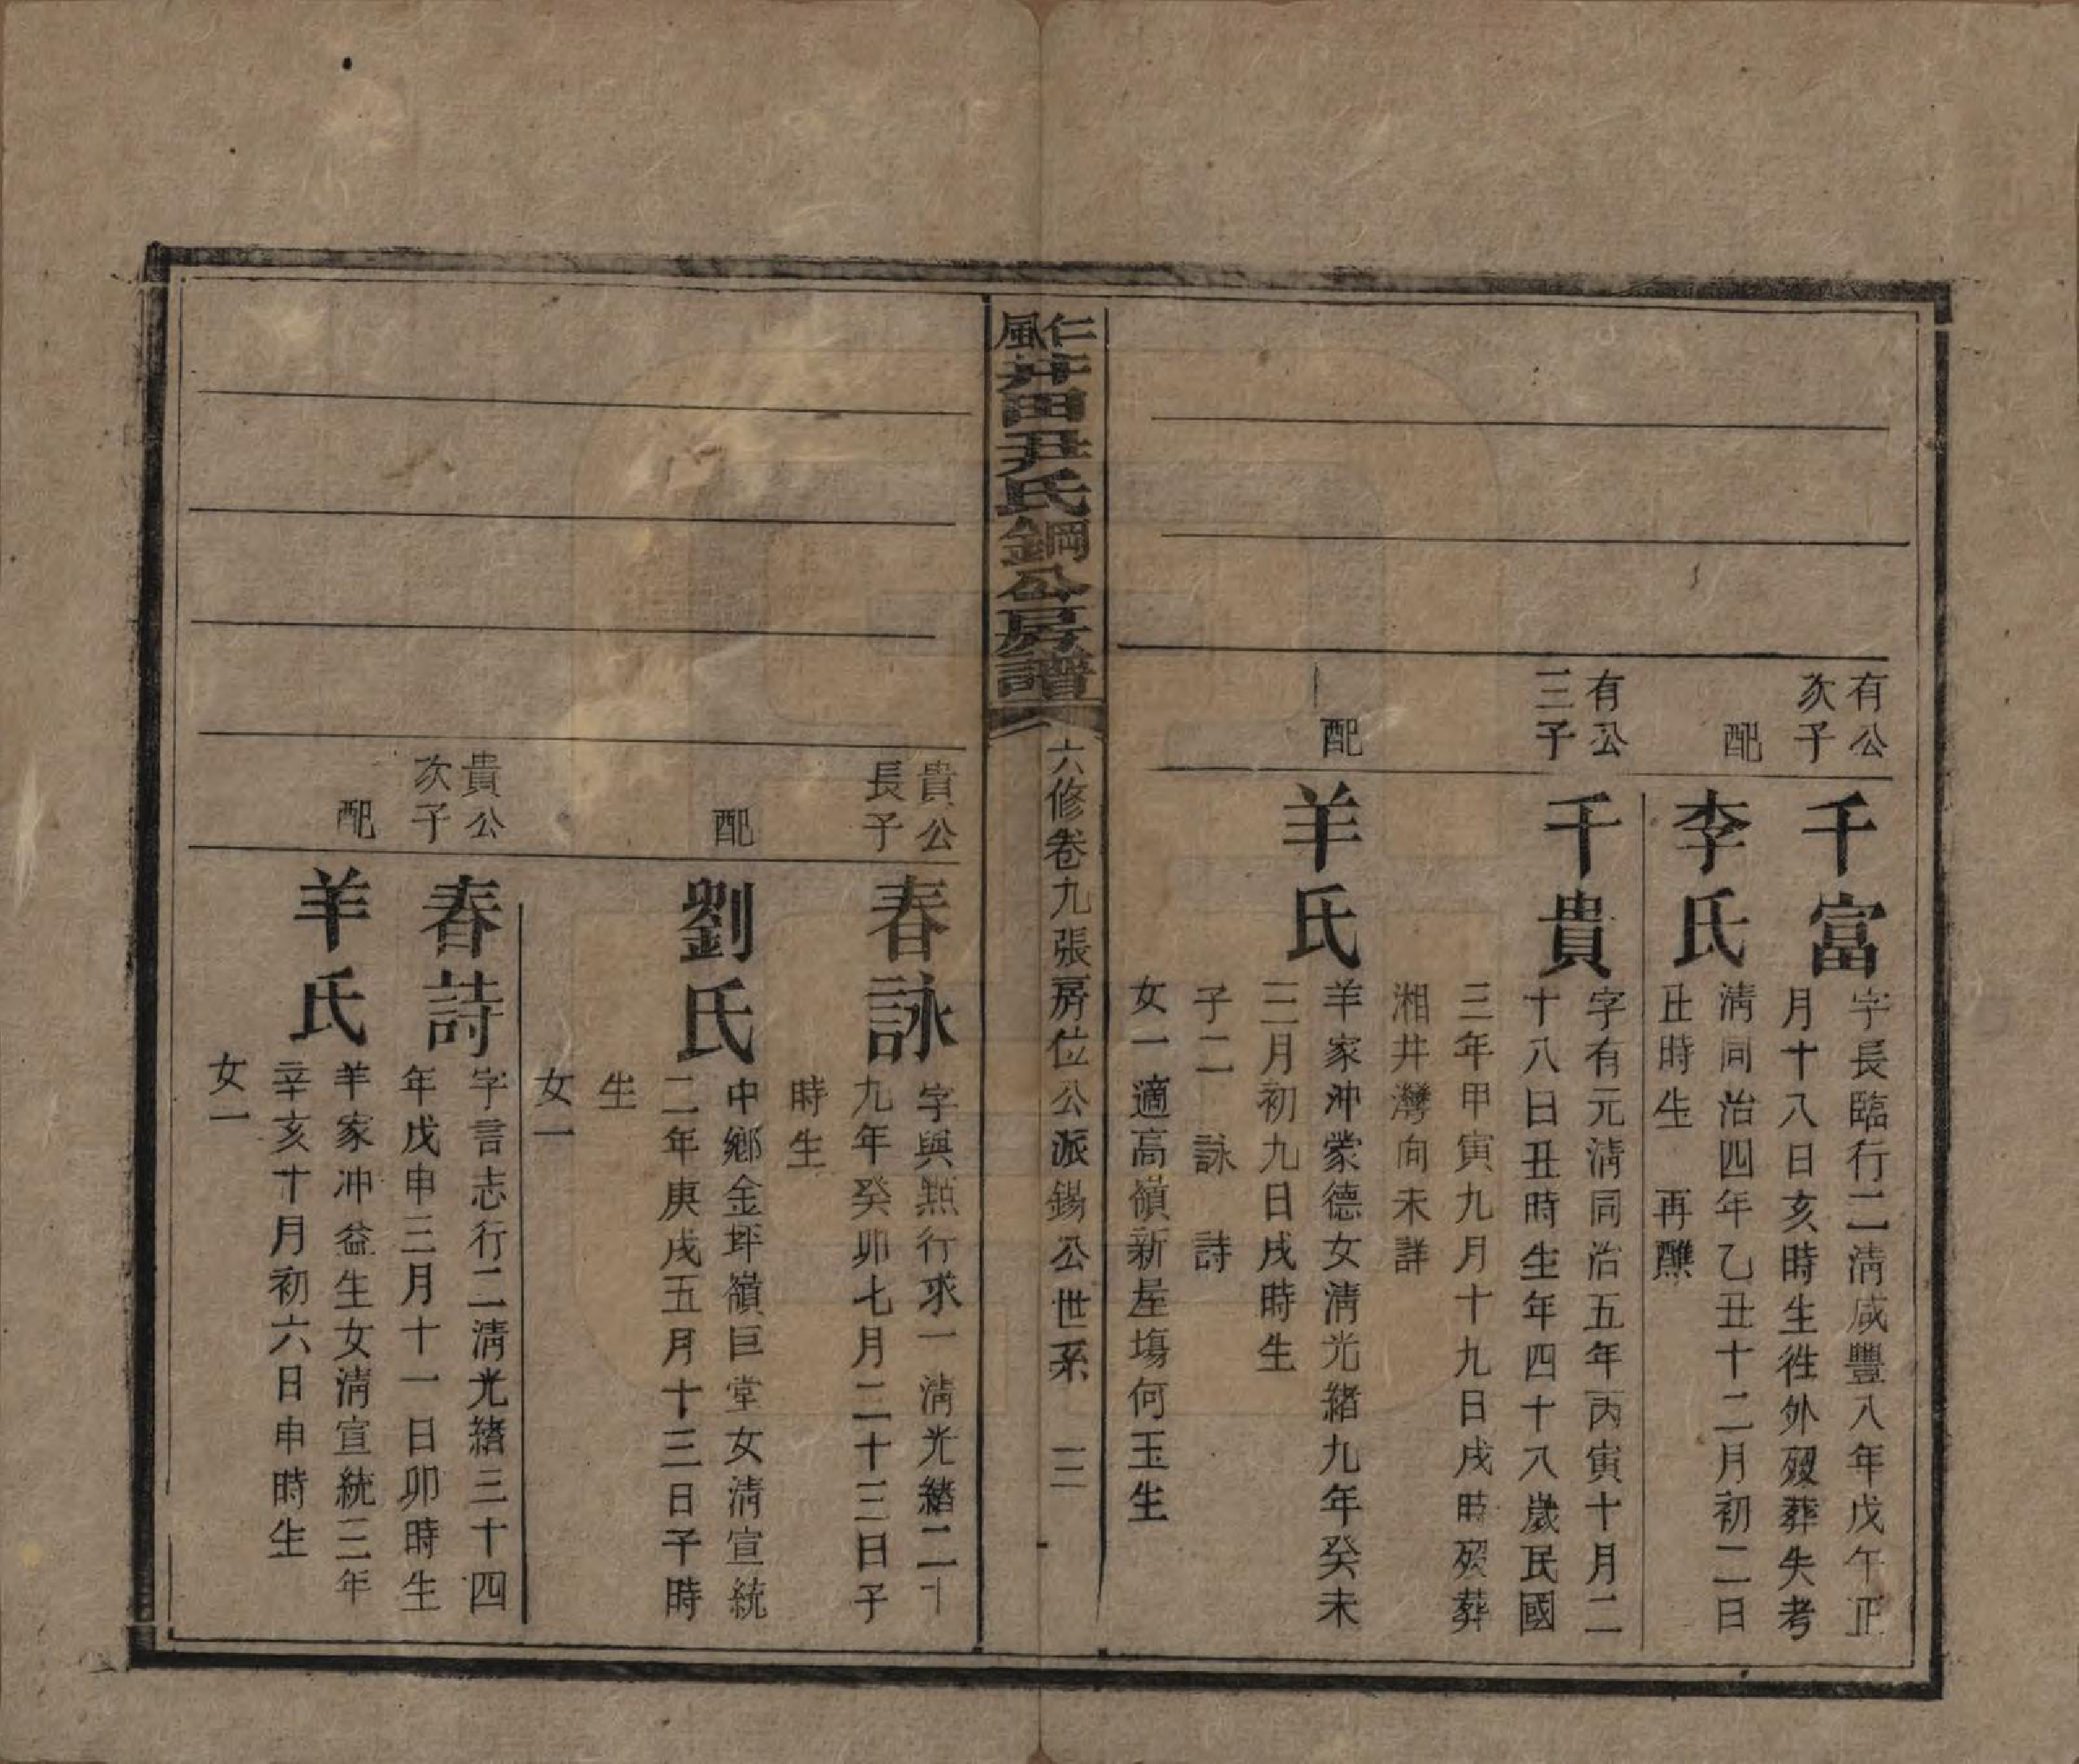 有公
次子
千富
字長臨行二清咸豐八年戊午正
月十八日亥時生徃外歿葬失考
配
李氏
清同治四年乙丑十二月初二日
丑時生 再醮
有公
三子
千貴
字有元清同治五年丙寅十月二
十八日丑時生年四十八歲民國
三年甲寅九月十九日戌時歿葬
湘井灣向未詳
配
羊氏
羊家冲蒙德女清光緒九年癸未
三月初九日戌時生
子二 詠 詩
女一適高嶺新屋塲何玉生
仁風井田尹氏鋼公房譜
六修卷九張房位公派錫公世系 三
貴公
長子
春詠
字與點行求一清光緒二十
九年癸卯七月二十三日子
時生
配
劉氏
中鄉金坪嶺巨堂女清宣統
二年庚戌五月十三日子時
生
女一
貴公
次子
春詩
字言志行二清光緒三十四
年戊申三月十一日卯時生
配
羊氏
羊家冲益生女清宣統三年
辛亥十月初六日申時生
女一